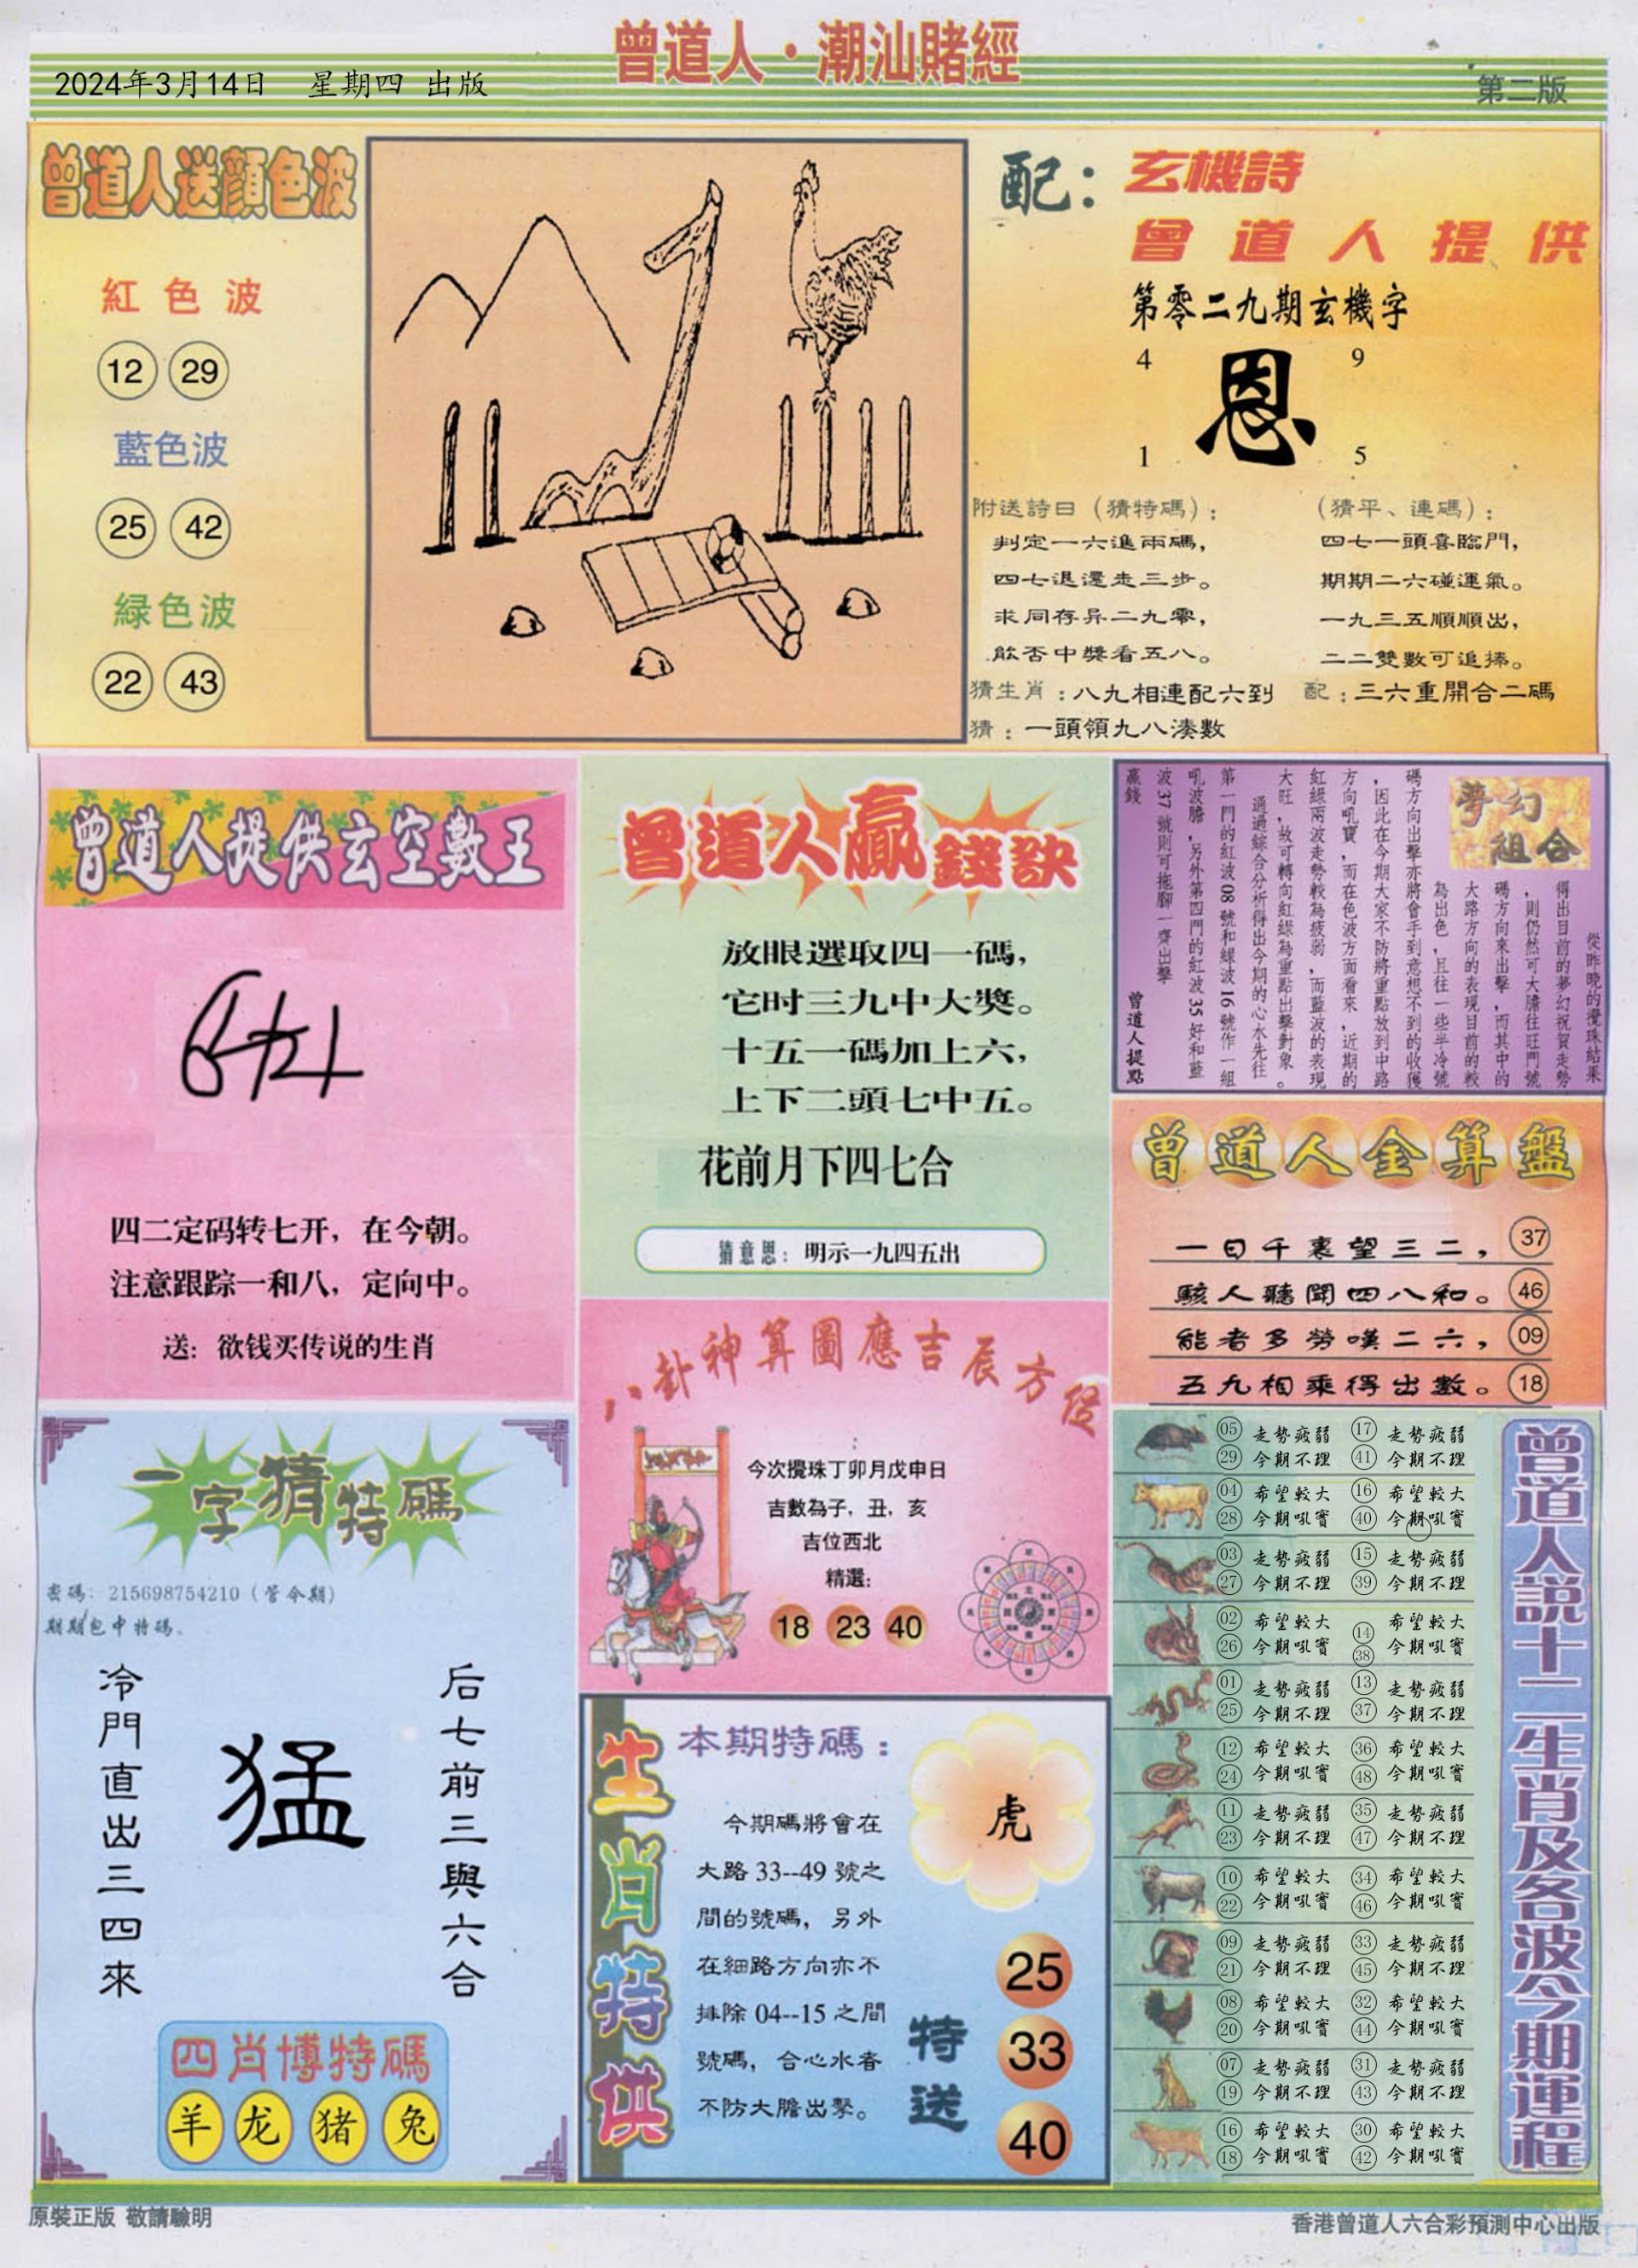 曾道人·潮汕賭經
2024年3月14日 星期四 出版
第二版
曾道人送顏色波
紅色波
12 29
藍色波
25 42
緑色波
22 43
配：玄機詩
曾道人提供
第零二九期玄機字
4 9
恩
1 5
附送詩曰（猜特碼）：
判定一六進兩碼，
四七退還走三步。
求同存异二九零，
能否中獎看五八。
（猜平、連碼）：
四七一頭喜臨門，
期期二六碰運氣。
一九三五順順出，
二二雙數可追捧。
猜生肖：八九相連配六到
配：三六重開合二碼
猜：一頭領九八湊數
曾道人提供玄空數王
四二定码转七开，在今朝。
注意跟踪一和八，定向中。
送：欲钱买传说的生肖
曾道人贏錢訣
放眼選取四一碼，
它时三九中大獎。
十五一碼加上六，
上下二頭七中五。
花前月下四七合
猜意思：明示一九四五出
夢幻
組合
從昨晚的攪珠結果
得出目前的夢幻祝賀走勢
，則仍然可大膽往旺門號
碼方向來出擊，而其中的
大路方向的表現目前的較
為出色，且往一些半冷號
碼方向出擊亦將會手到意想不到的收獲
，因此在今期大家不防將重點放到中路
方向吼寶，而在色波方面看來，近期的
紅綠兩波走勢較為疲弱，而藍波的表現
大旺，故可轉向紅綠為重點出擊對象。
通過綜合分析得出今期的心水先往
第一門的紅波08號和綠波16號作一組
吼波膽，另外第四門的紅波35好和藍
波37號則可拖腳一齊出擊
贏錢
曾道人提點
曾道人金算盤
一日千裏望三二， 37
駭人聽聞四八和。 46
能者多勞嘆二六， 09
五九相乘得出數。 18
八卦神算圖應吉辰方位
今次攪珠丁卯月戊申日
吉數為子，丑，亥
吉位西北
精選：
18 23 40
一字猜特碼
密碼：215698754210（管今期）
期期包中特碼。
冷門直出三四來
猛
后七前三與六合
四肖博特碼
羊 龙 猪 兔
生肖特供
本期特碼：
虎
今期碼將會在
大路33--49號之
間的號碼，另外
在細路方向亦不
排除04--15之間
號碼，合心水者
不防大膽出擊。
特送
25
33
40
05 走勢疲弱 17 走勢疲弱
29 今期不理 41 今期不理
04 希望較大 16 希望較大
28 今期吼寶 40 今期吼寶
03 走勢疲弱 15 走勢疲弱
27 今期不理 39 今期不理
02 希望較大 14 希望較大
26 今期吼寶 38 今期吼寶
01 走勢疲弱 13 走勢疲弱
25 今期不理 37 今期不理
12 希望較大 36 希望較大
24 今期吼寶 48 今期吼寶
11 走勢疲弱 35 走勢疲弱
23 今期不理 47 今期不理
10 希望較大 34 希望較大
22 今期吼寶 46 今期吼寶
09 走勢疲弱 33 走勢疲弱
21 今期不理 45 今期不理
08 希望較大 32 希望較大
20 今期吼寶 44 今期吼寶
07 走勢疲弱 31 走勢疲弱
19 今期不理 43 今期不理
16 希望較大 30 希望較大
18 今期吼寶 42 今期吼寶
曾道人說十二生肖及各波今期運程
原裝正版 敬請驗明
香港曾道人六合彩預測中心出版